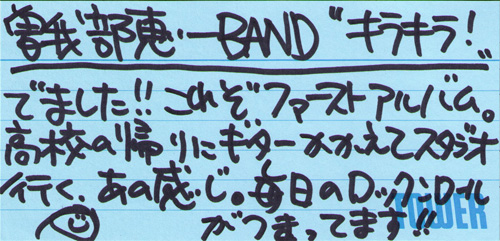 曽我部恵一BAND "キラキラ!"
でました!! これぞファーストアルバム。
高校の帰りにギターかかえてスタジオ
行く、あの感じ。毎日のロックンロール
がつまってます!!
TOWER